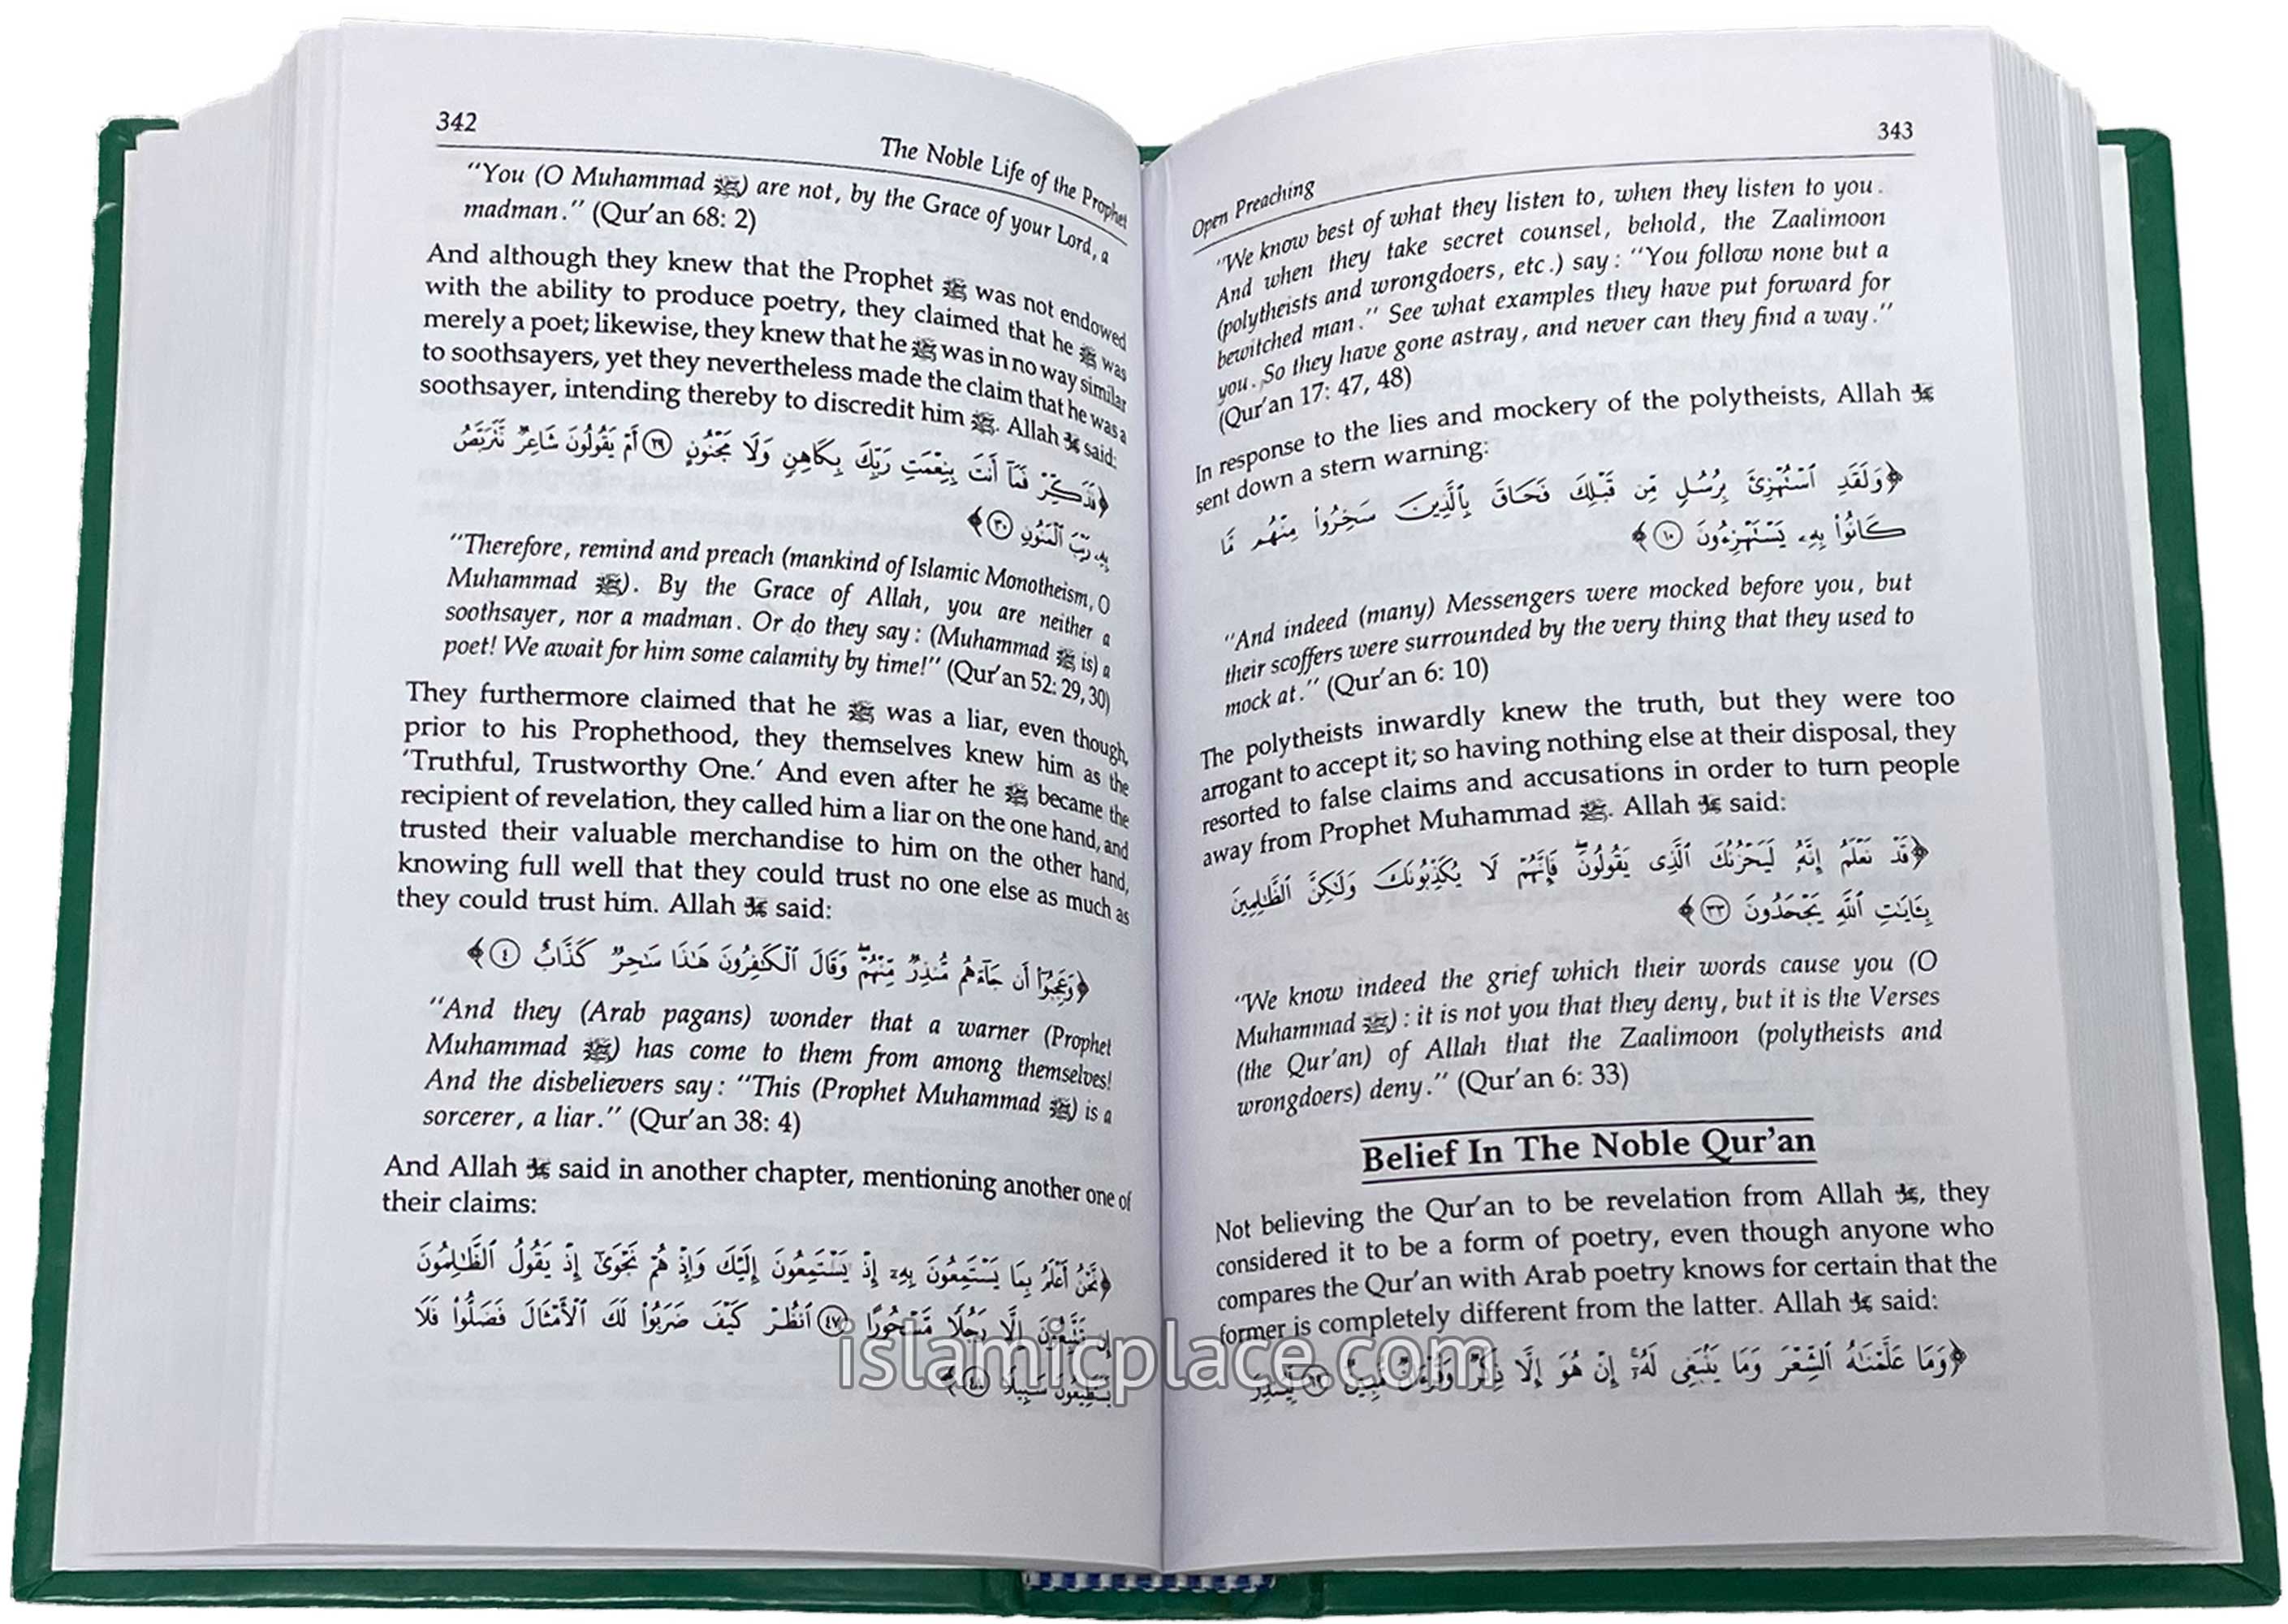 342
The Noble Life of the Prophet
"You (O Muhammad ﷺ) are not, by the Grace of your Lord, a
madman." (Qur'an 68: 2)
And although they knew that the Prophet ﷺ was not endowed
with the ability to produce poetry, they claimed that he ﷺ was
merely a poet; likewise, they knew that he ﷺ was in no way similar
to soothsayers, yet they nevertheless made the claim that he was a
soothsayer, intending thereby to discredit him ﷺ. Allah ﷻ said:
﴿فَذَكِّرْ فَمَآ أَنتَ بِنِعْمَتِ رَبِّكَ بِكَاهِنٍ وَلَا مَجْنُونٍ ﴿٢٩﴾ أَمْ يَقُولُونَ شَاعِرٌ نَّتَرَبَّصُ
بِهِۦ رَيْبَ ٱلْمَنُونِ ﴿٣٠﴾﴾
"Therefore, remind and preach (mankind of Islamic Monotheism, O
Muhammad ﷺ). By the Grace of Allah, you are neither a
soothsayer, nor a madman. Or do they say: (Muhammad ﷺ is) a
poet! We await for him some calamity by time!" (Qur'an 52: 29, 30)
They furthermore claimed that he ﷺ was a liar, even though,
prior to his Prophethood, they themselves knew him as the
'Truthful, Trustworthy One.' And even after he ﷺ became the
recipient of revelation, they called him a liar on the one hand, and
trusted their valuable merchandise to him on the other hand,
knowing full well that they could trust no one else as much as
they could trust him. Allah ﷻ said:
﴿وَعَجِبُوٓا۟ أَن جَآءَهُم مُّنذِرٌ مِّنْهُمْ ۖ وَقَالَ ٱلْكَـٰفِرُونَ هَـٰذَا سَـٰحِرٌ كَذَّابٌ ﴿٤﴾﴾
"And they (Arab pagans) wonder that a warner (Prophet
Muhammad ﷺ) has come to them from among themselves!
And the disbelievers say: "This (Prophet Muhammad ﷺ) is a
sorcerer, a liar." (Qur'an 38: 4)
And Allah ﷻ said in another chapter, mentioning another one of
their claims:
﴿نَّحْنُ أَعْلَمُ بِمَا يَسْتَمِعُونَ بِهِۦٓ إِذْ يَسْتَمِعُونَ إِلَيْكَ وَإِذْ هُمْ نَجْوَىٰٓ إِذْ يَقُولُ ٱلظَّـٰلِمُونَ
إِن تَتَّبِعُونَ إِلَّا رَجُلًا مَّسْحُورًا ﴿٤٧﴾ ٱنظُرْ كَيْفَ ضَرَبُوا۟ لَكَ ٱلْأَمْثَالَ فَضَلُّوا۟ فَلَا
يَسْتَطِيعُونَ سَبِيلًا
343
Open Preaching
"We know best of what they listen to, when they listen to you.
And when they take secret counsel, behold, the Zaalimoon
(polytheists and wrongdoers, etc.) say: "You follow none but a
bewitched man." See what examples they have put forward for
you. So they have gone astray, and never can they find a way."
(Qur'an 17: 47, 48)
In response to the lies and mockery of the polytheists, Allah ﷻ
sent down a stern warning:
﴿وَلَقَدِ ٱسْتُهْزِئَ بِرُسُلٍ مِّن قَبْلِكَ فَحَاقَ بِٱلَّذِينَ سَخِرُوا۟ مِنْهُم مَّا
كَانُوا۟ بِهِۦ يَسْتَهْزِءُونَ ﴿١٠﴾﴾
"And indeed (many) Messengers were mocked before you, but
their scoffers were surrounded by the very thing that they used to
mock at." (Qur'an 6: 10)
The polytheists inwardly knew the truth, but they were too
arrogant to accept it; so having nothing else at their disposal, they
resorted to false claims and accusations in order to turn people
away from Prophet Muhammad ﷺ. Allah ﷻ said:
﴿قَدْ نَعْلَمُ إِنَّهُۥ لَيَحْزُنُكَ ٱلَّذِى يَقُولُونَ ۖ فَإِنَّهُمْ لَا يُكَذِّبُونَكَ وَلَـٰكِنَّ ٱلظَّـٰلِمِينَ
بِـَٔايَـٰتِ ٱللَّهِ يَجْحَدُونَ ﴿٣٣﴾﴾
"We know indeed the grief which their words cause you (O
Muhammad ﷺ): it is not you that they deny, but it is the Verses
(the Qur'an) of Allah that the Zaalimoon (polytheists and
wrongdoers) deny." (Qur'an 6: 33)
Belief In The Noble Qur'an
Not believing the Qur'an to be revelation from Allah ﷻ, they
considered it to be a form of poetry, even though anyone who
compares the Qur'an with Arab poetry knows for certain that the
former is completely different from the latter. Allah ﷻ said:
﴿وَمَا عَلَّمْنَـٰهُ ٱلشِّعْرَ وَمَا يَنۢبَغِى لَهُۥٓ ۚ إِنْ هُوَ إِلَّا ذِكْرٌ وَقُرْءَانٌ مُّبِينٌ ﴿٦٩﴾ لِّيُنذِرَ
islamicplace.com